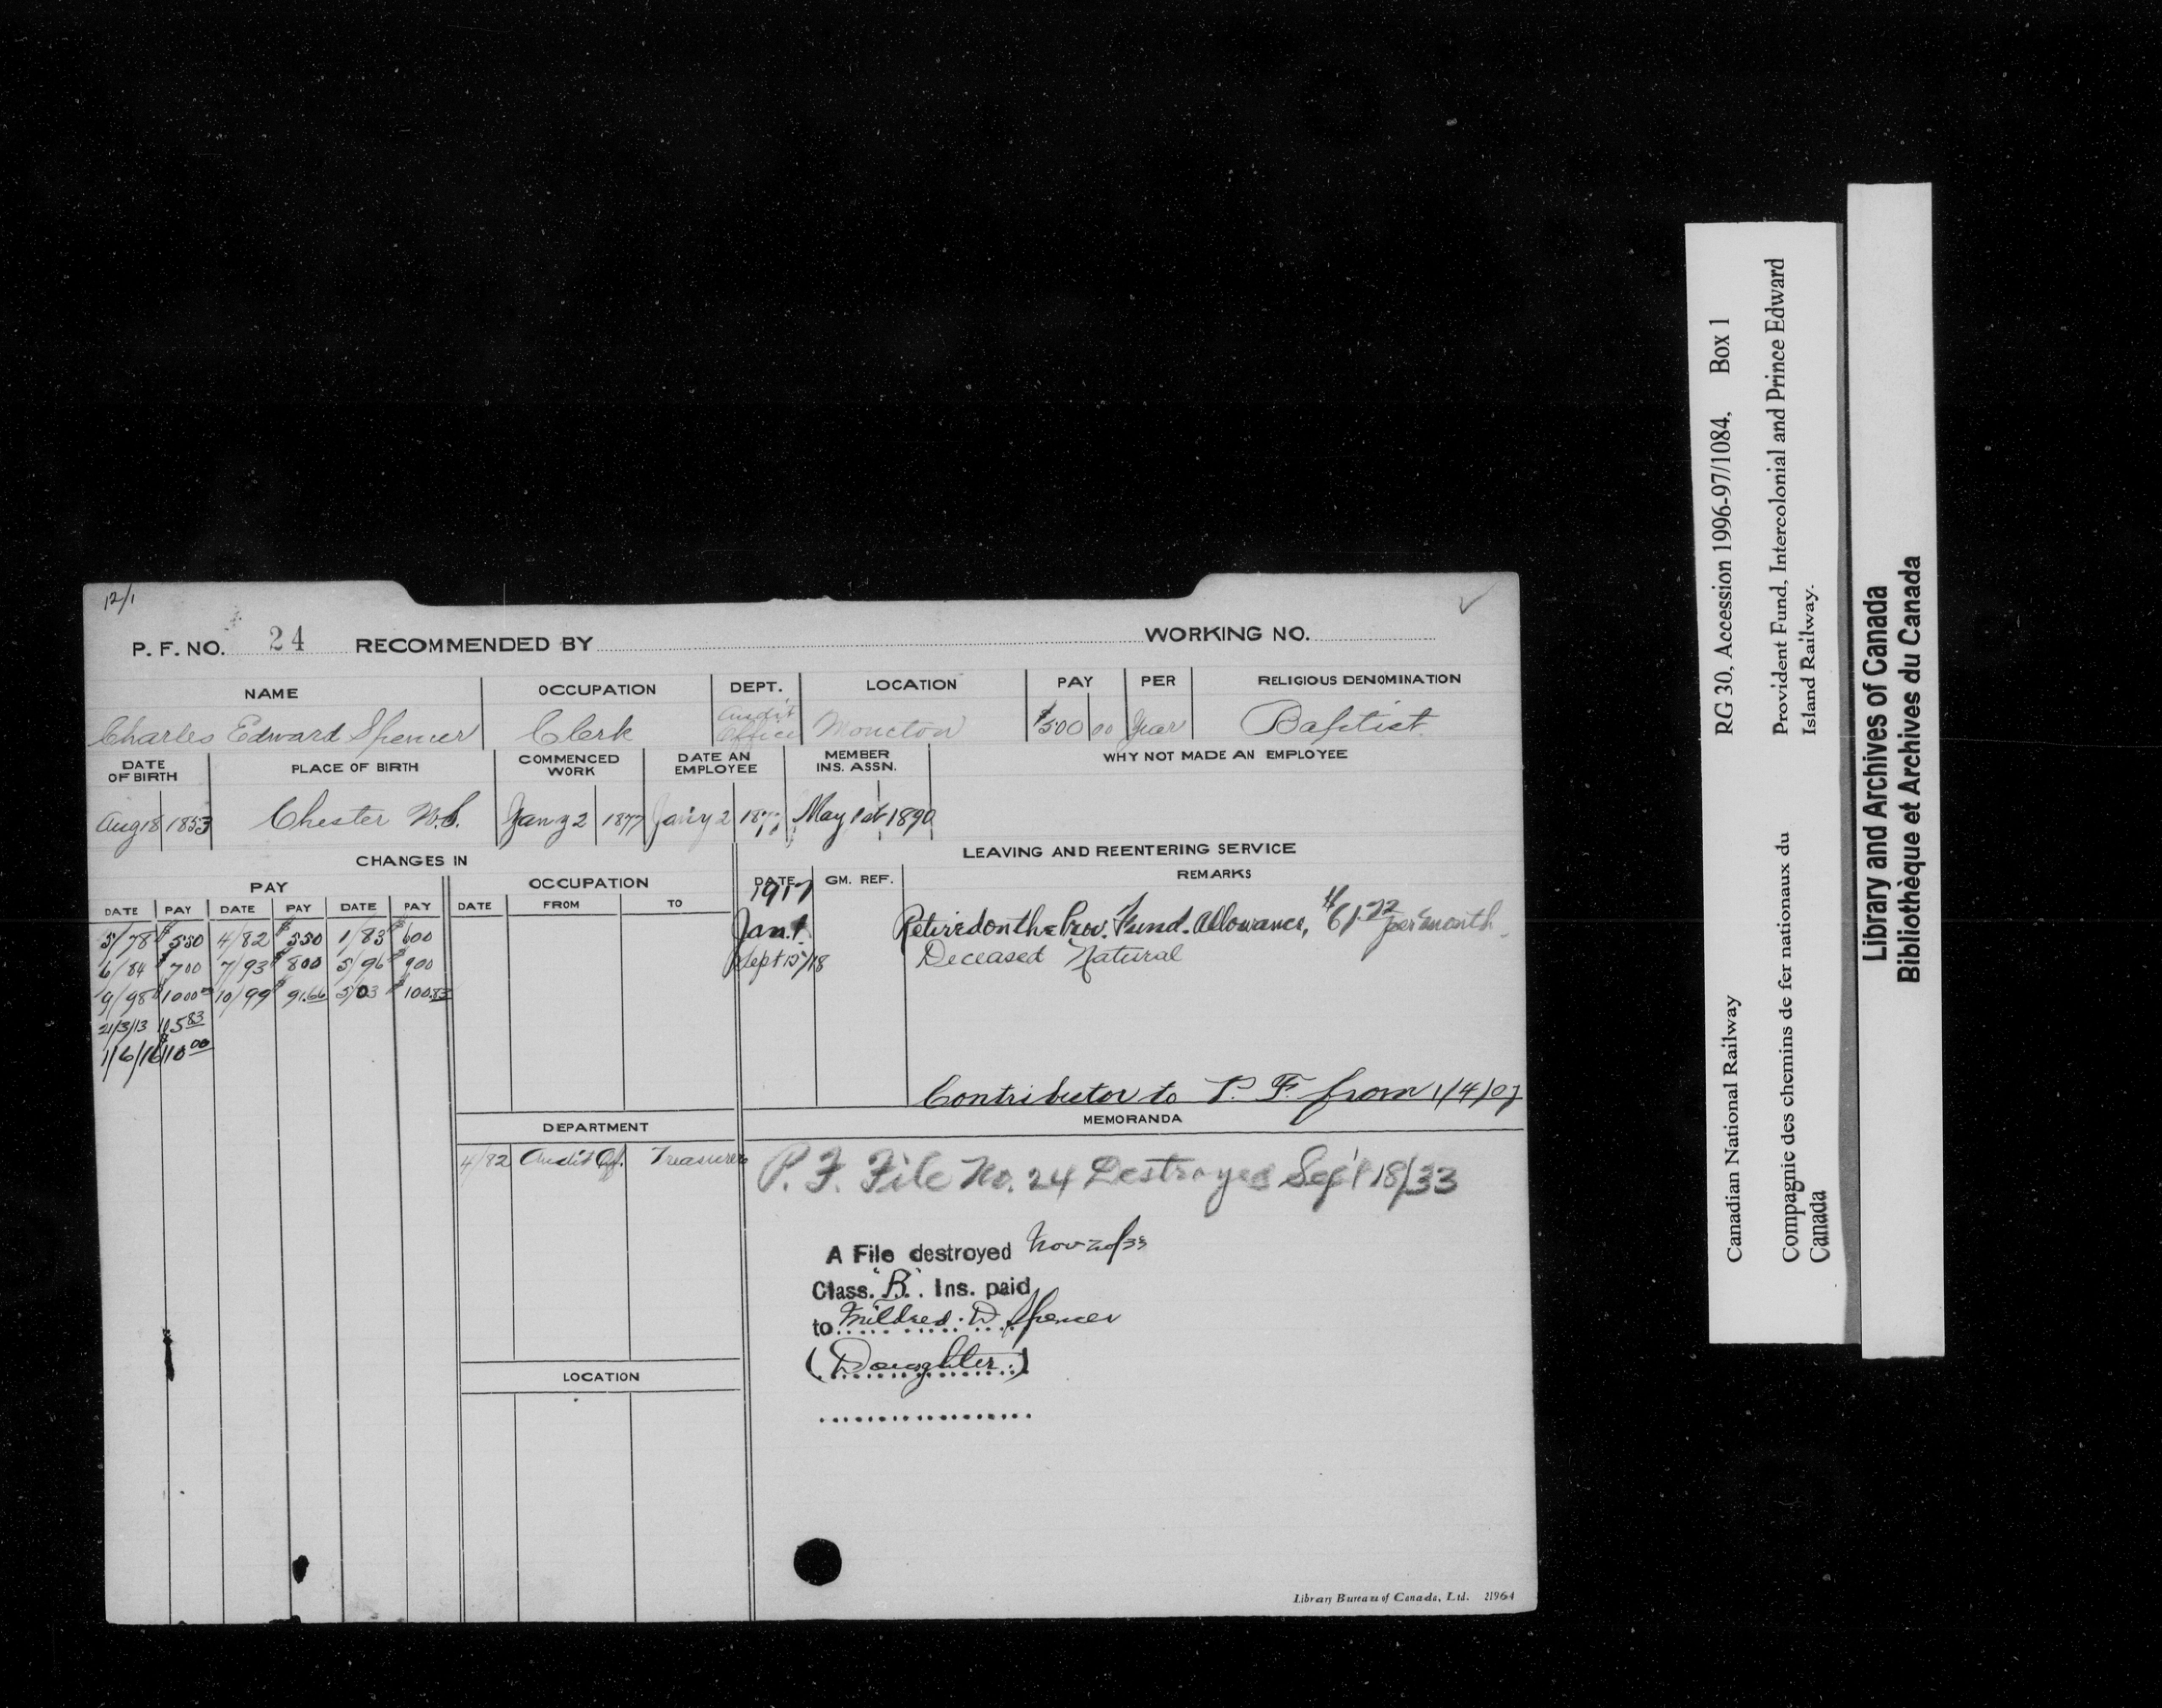 12/1
P. F. NO. 24 RECOMMENDED BY WORKING NO.
NAME OCCUPATION DEPT. LOCATION PAY PER RELIGIOUS DENOMINATION
Charles Edward Spencer Clerk Audit Office Moncton $500 00 Year Baptist
DATE OF BIRTH PLACE OF BIRTH COMMENCED WORK DATE AN EMPLOYEE MEMBER INS. ASSN. WHY NOT MADE AN EMPLOYEE
Aug 18 1853 Chester N.S. Jan'y 2 1877 Jan'y 2 1877 May 1st 1890
CHANGES IN
LEAVING AND REENTERING SERVICE
PAY OCCUPATION DATE GM. REF. REMARKS
DATE PAY DATE PAY DATE PAY DATE FROM TO
1917
5/78 $550 4/82 $550 1/83 $600
Jan. 1. Retired on the Prov. Fund. Allowance, $61.72 per month.
6/84 $700 7/93 $800 5/96 $900
Sept 15/18 Deceased Natural
9/98 $1000 10/99 $91.66 5/03 $100.83
21/3/13
1/6/16 $110 00
Contributor to P. F. from 1/4/07
DEPARTMENT
MEMORANDA
4/82 Audit Of. Treasurer
P. F. File No. 24 Destroyed Sept 18/33
A File destroyed Nov 20/33
Class. "B". Ins. paid
to Mildred. D. Spencer
(Daughter.)
LOCATION
Library Bureau of Canada, Ltd. 21964
RG 30, Accession 1996-97/1084, Box 1
Canadian National Railway
Provident Fund, Intercolonial and Prince Edward
Island Railway.
Compagnie des chemins de fer nationaux du
Canada
Library and Archives of Canada
Bibliothèque et Archives du Canada